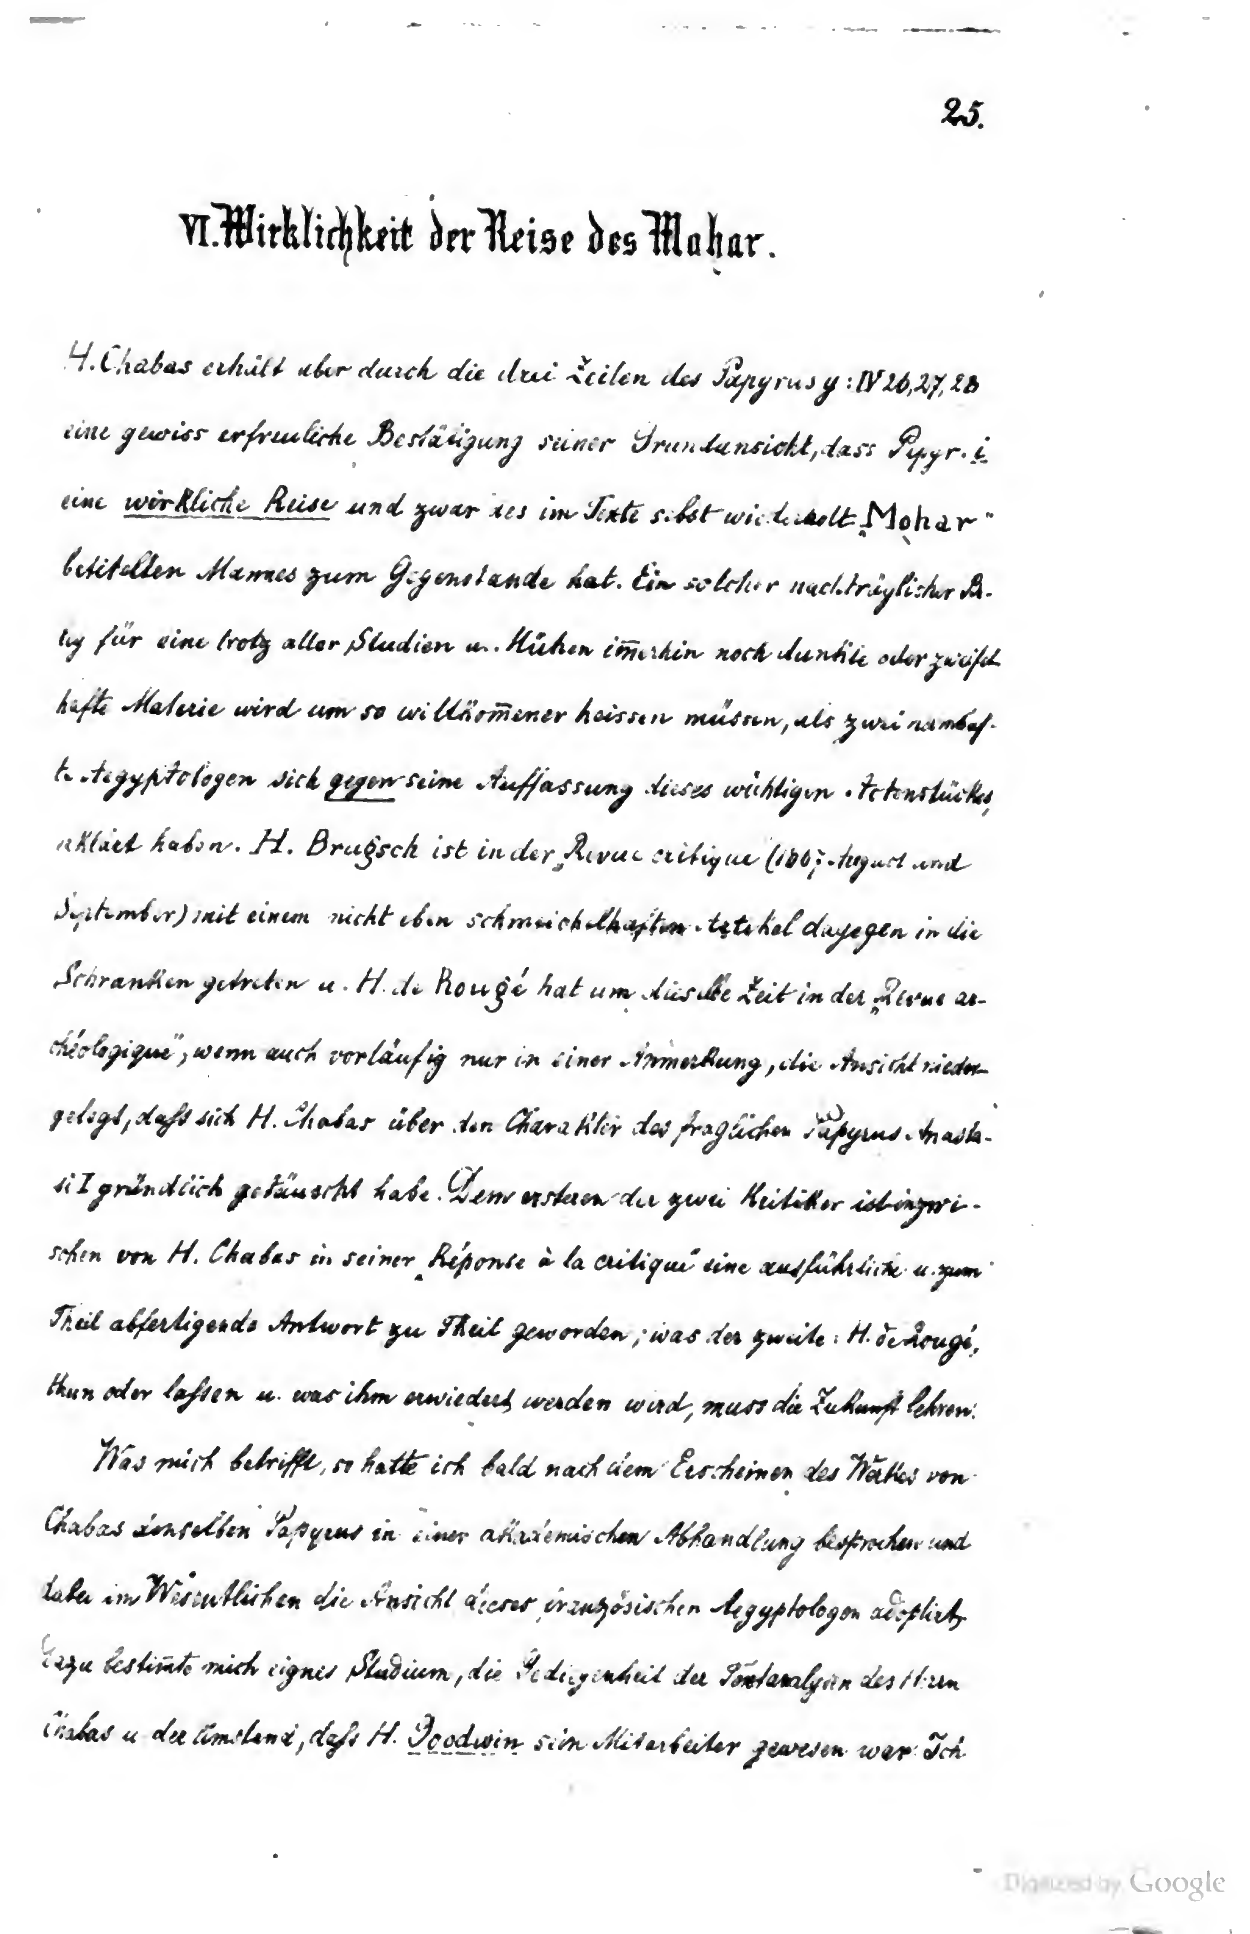 25.
VI. Wirklichkeit der Reise des Mohar.
H. Chabas erhält aber durch die drei Zeilen des Papyrus y: IV 26, 27, 28
eine gewiss erfreuliche Bestätigung seiner Grundansicht, dass Papyr. i
eine wirkliche Reise und zwar des im Texte selbst wiederholt „Mohar"
betitelten Mannes zum Gegenstande hat. Ein solcher nachträglicher Be-
leg für eine trotz aller Studien u. Mühen im̅erhin noch dunkle oder zweifel
hafte Materie wird um so willkom̅ener heissen müssen, als zwei namhaf-
te Aegyptologen sich gegen seine Auffassung dieses wichtigen Actenstückes,
erklärt haben. H. Brugsch ist in der „Revue critique (1867, August und
September) mit einem nicht eben schmeichelhaften Artikel dagegen in die
Schranken getreten u. H. de Rougé hat um dieselbe Zeit in der „Revue ar-
chéologique", wenn auch vorläufig nur in einer Anmerkung, die Ansicht nieder-
gelegt, daſs sich H. Chabas über den Charakter des fraglichen Papyrus Anasta-
si I gründlich getäuscht habe. Dem ersteren der zwei Kritiker ist inzwi-
schen von H. Chabas in seiner „Réponse à la critique" eine ausführliche u. zum
Theil abfertigende Antwort zu Theil geworden; was der zweite: H. de Rougé,
thun oder laſsen u. was ihm erwiedert werden wird, muss die Zukunft lehren.
Was mich betrifft, so hatte ich bald nach dem Erscheinen des Werkes von
Chabas denselben Papyrus in einer akademischen Abhandlung besprochen und
dabei im Wesentlichen die Ansicht dieses französischen Aegyptologen adoptirt,
Dazu bestim̅te mich eignes Studium, die Gediegenheit der Textanalysen des Herrn
Chabas u. der Umstand, daſs H. Goodwin sein Mitarbeiter gewesen war. Ich
Digitized by Google